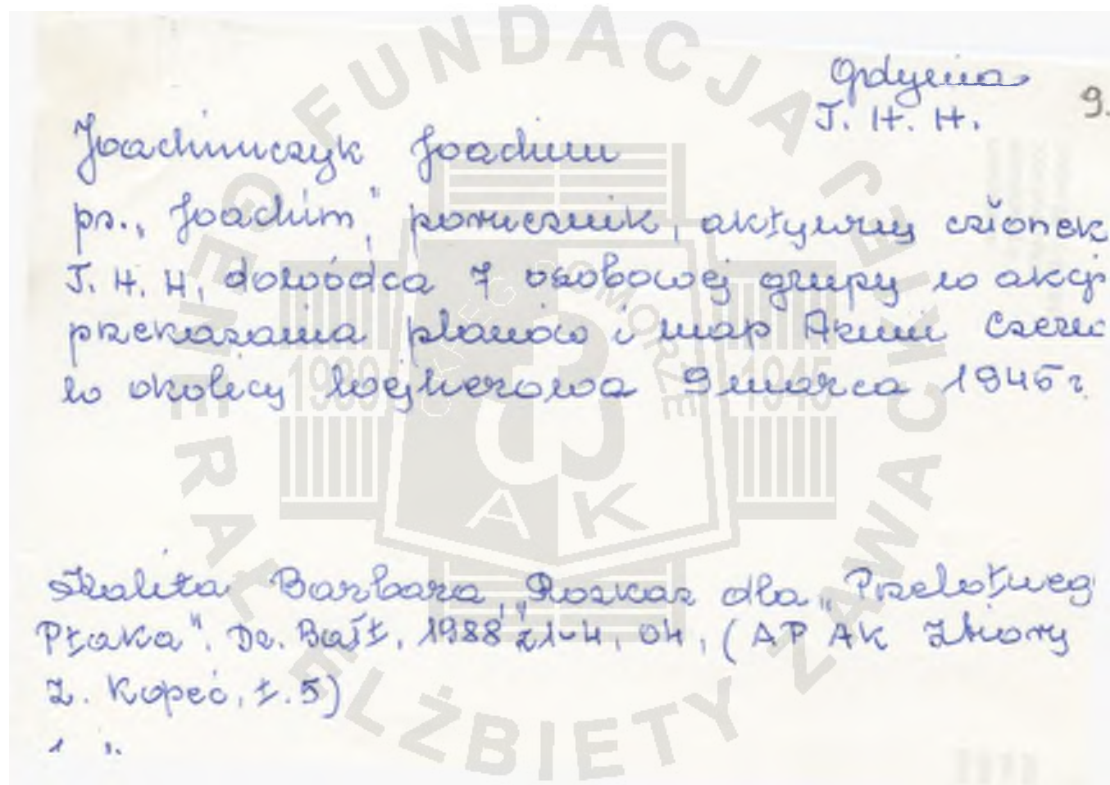 Gdynia
T. H. H. 9.
Joachimczyk Joachim
ps. „Joachim" porucznik, aktywny członek
T. H. H, dowódca 7 osobowej grupy w akcji
przekazania planów i map Armii Czerw
w okolicy Wejherowa 9 marca 1945 r.
Skalita Barbara, „Rozkaz dla „Przelotneg
Ptaka". Dz. Bałt. 1988 21-4, 04, (AP AK Zbiory
Z. Kopeć, t. 5)
FUNDACJA GENERAŁ ELŻBIETY ZAWACKIEJ
1939 1945
POMORZE
AK